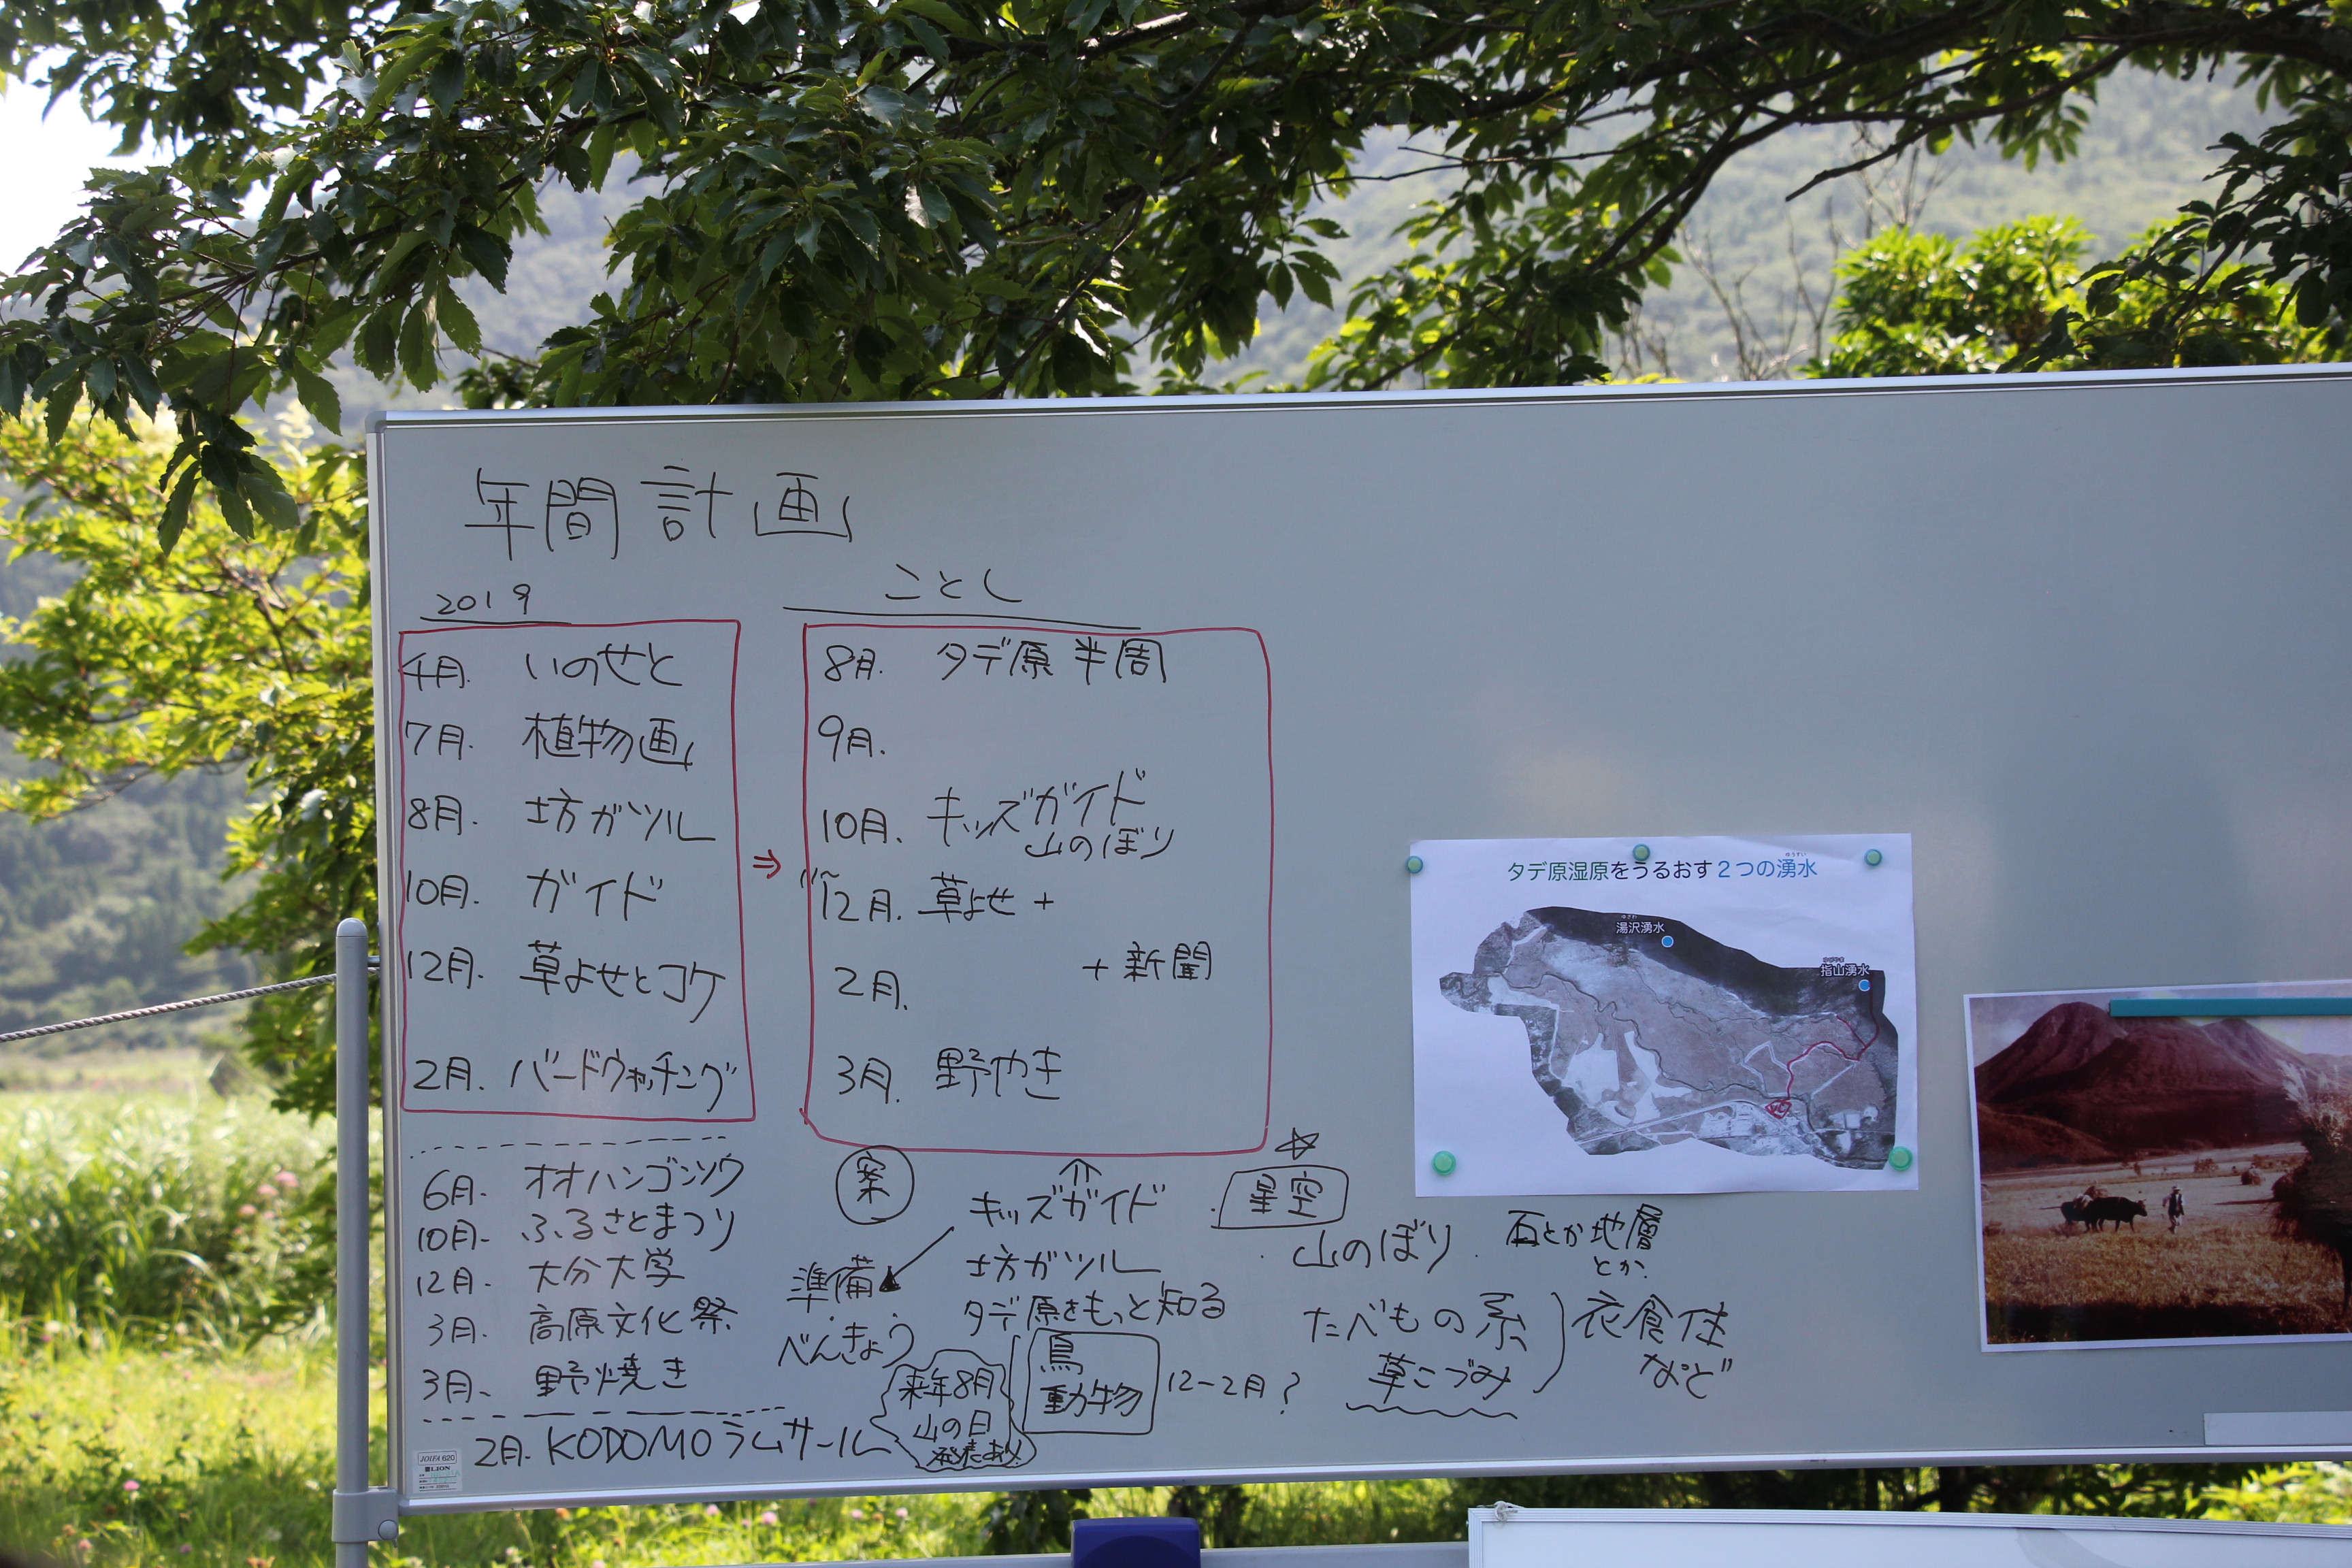 年間計画
2019
4月. いのせと
7月. 植物画
8月. 坊ガツル
10月. ガイド
12月. 草よせとコケ
2月. バードウォッチング
6月. オオハンゴンソウ
10月. ふるさとまつり
12月. 大分大学
3月. 高原文化祭
3月、 野焼き
2月. KODOMOラムサール
⇒
ことし
8月. タデ原 半周
9月.
10月. キッズガイド
山のぼり
12月. 草よせ +
2月. + 新聞
3月. 野やき
案
キッズガイド
準備
べんきょう
坊ガツル
タデ原をもっと知る
鳥
動物
12-2月?
来年8月
山の日
発表あり!
☆
星空
山のぼり
石とか地層
とか.
たべもの系
草こづみ
衣食住
など
タデ原湿原をうるおす2つの湧水
ゆうすい
湯沢湧水
指山湧水
JOIFA 620
LION